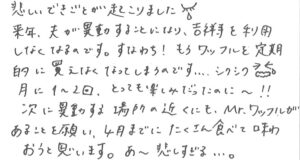 悲しいできごとが起こりました
来年、夫が異動することになり、吉祥寺を利用
しなくなるのです。すなわち！もうワッフルを定期
的に買えなくなってしまうのです…。シクシク
月に1〜2回、とっても楽しみだったのに〜!!
次に異動する場所の近くにも、Mr.ワッフルが
あることを願い、4月までにたくさん食べて味わ
おうと思います。あ〜悲しすぎる…。